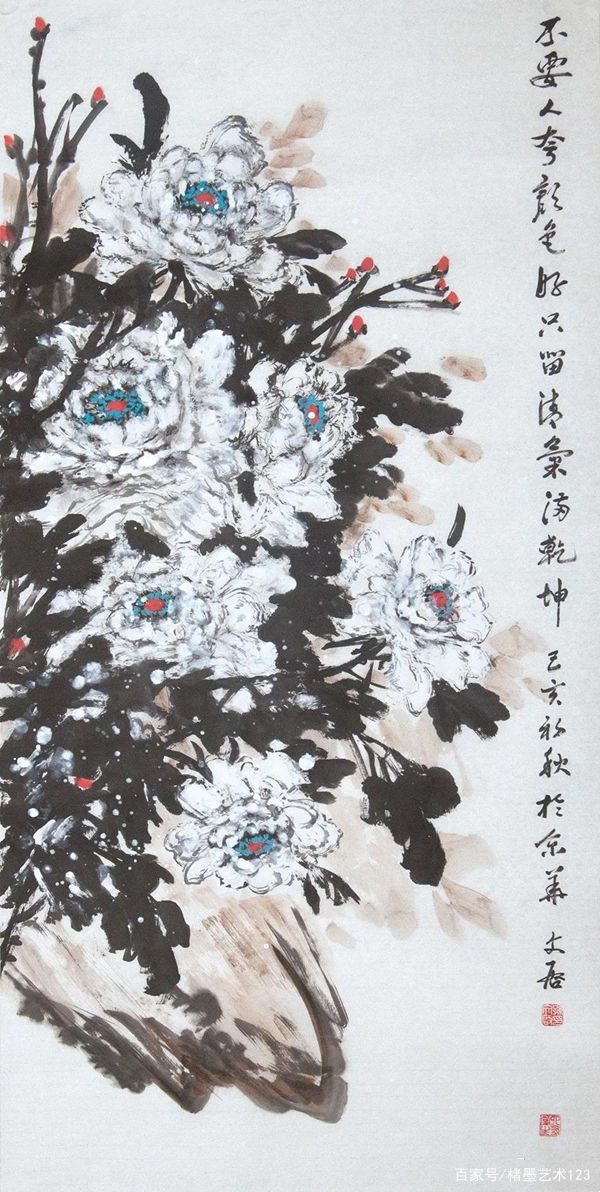 不要人夸颜色好只留清气满乾坤 己亥初秋於京华 文启
百家号/楮墨艺术123